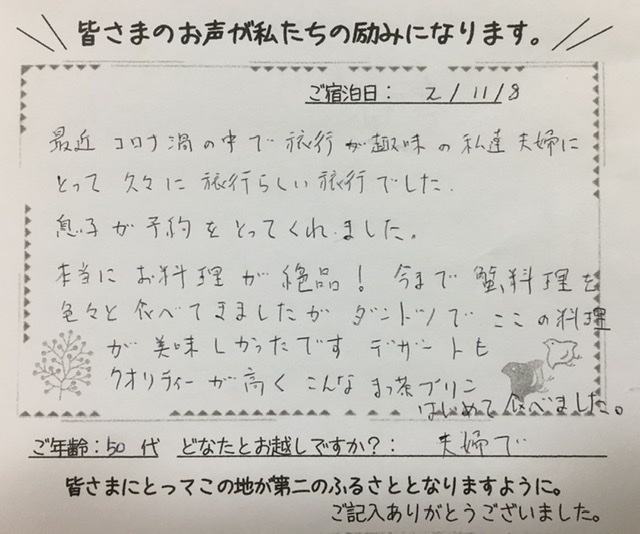 皆さまのお声が私たちの励みになります。
ご宿泊日： 2/11/8
最近 コロナ渦の中で 旅行が趣味の私達夫婦に
とって 久々に 旅行らしい旅行でした.
息子が予約をとってくれました。
本当に お料理が絶品！ 今まで 蟹料理を
色々と食べてきましたが ダントツで ここの料理
が美味しかったです デザートも
クオリティーが高く こんなまっ茶プリン
はじめて食べました。
ご年齢：50代 どなたとお越しですか？： 夫婦で
皆さまにとってこの地が第二のふるさととなりますように。
ご記入ありがとうございました。